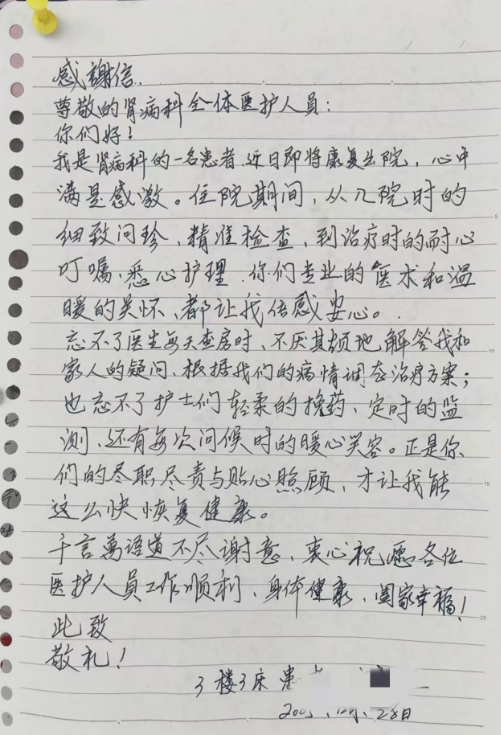 感謝信.
尊敬的肾病科全体医护人员:
你们好!
我是肾病科的一名患者.近日即将康复出院,心中
满是感激。住院期间,从入院时的
细致问珍、精准检查,到治疗时的耐心
叮嘱、悉心护理.你们专业的医术和温
暖的关怀、都让我倍感安心。
忘不了医生每天查房时、不厌其烦地解答我和
家人的疑问.根据我们的病情调态治疗方案;
也忘不了护士们轻柔的换药、定时的监
测、还有每次问候时的暖心笑容。正是你
们的尽职尽责与贴心照顾,才让我能
这么快恢复健康。
千言萬语道不尽谢意、衷心祝愿各位
医护人员工作顺利、身体健康、阖家幸福!
此致
敬礼!
3楼3床患
12月.28日